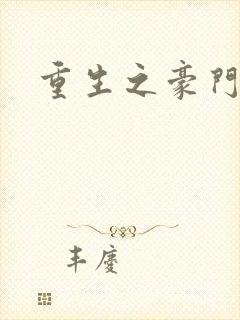 重生之豪門
丰慶